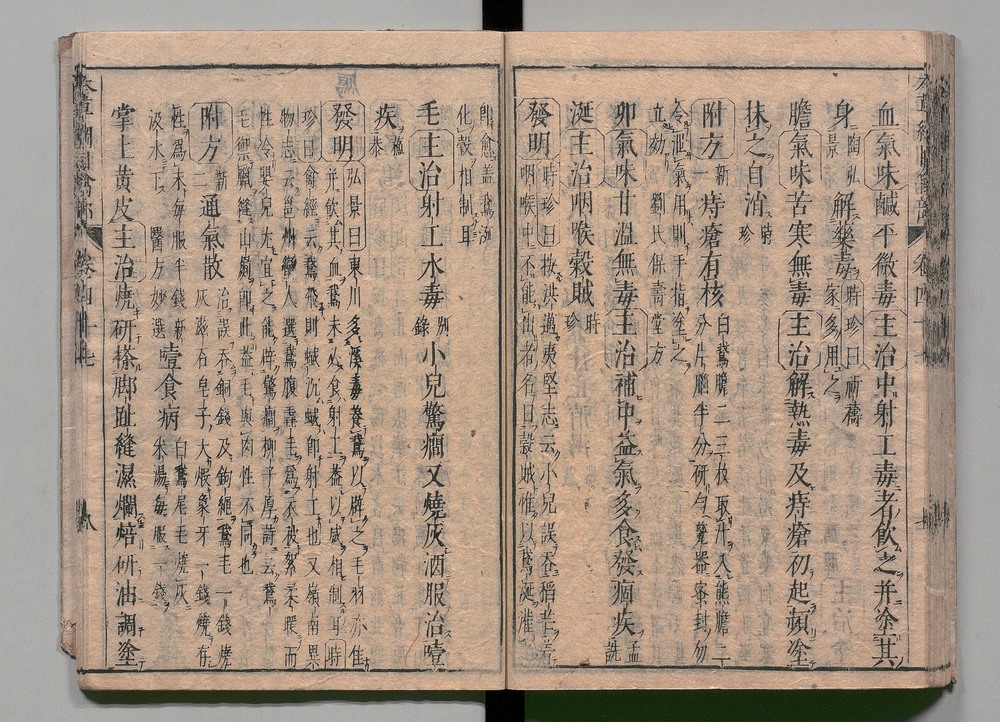 血氣味鹹平微毒主治中射工毒者飲之并塗其
身陶弘景解藥毒時珍曰祈禱家多用之
膽氣味苦寒無毒主治解熱毒及痔瘡初起頻塗
抹之自消時珍
附方新一痔瘡有核白鵞膽二三枚取汁入熊膽二分片腦半分研勻瓷器密封勿
令泄氣用則手指塗之立效劉氏保壽堂方
卵氣味甘溫無毒主治補中益氣多食發痼疾孟詵
涎主治咽喉穀賊時珍
發明時珍曰按洪邁夷堅志云小兒誤吞稻芒着咽喉中不能出者名曰穀賊惟以鵞涎灌之
即愈蓋鵞涎化穀相制耳
毛主治射工水毒別錄小兒驚癇又燒灰酒服治噎
疾蘇恭
發明弘景曰東川多溪毒養鵞以辟之毛羽亦佳并飲其血鵞未必食射工蓋以威相制耳時
珍曰禽經云鵞飛則蜮沉蜮即射工也又嶺南異物志云邕州蠻人選鵞腹毳毛爲衣被絮柔暖而
性冷嬰兒尤宜之能辟驚癇柳子厚詩云鵞毛禦臘縫山罽即此蓋毛與肉性不同也
附方新二通氣散治誤吞銅錢及鉤繩鵞毛一錢燒灰滋石皂子大煆象牙一錢燒存
性爲末每服半錢新汲水下醫方妙選噎食病白鵞尾毛燒灰米湯每服一錢
掌上黃皮主治燒研搽脚趾縫濕爛焙研油調塗
卷四十七
八